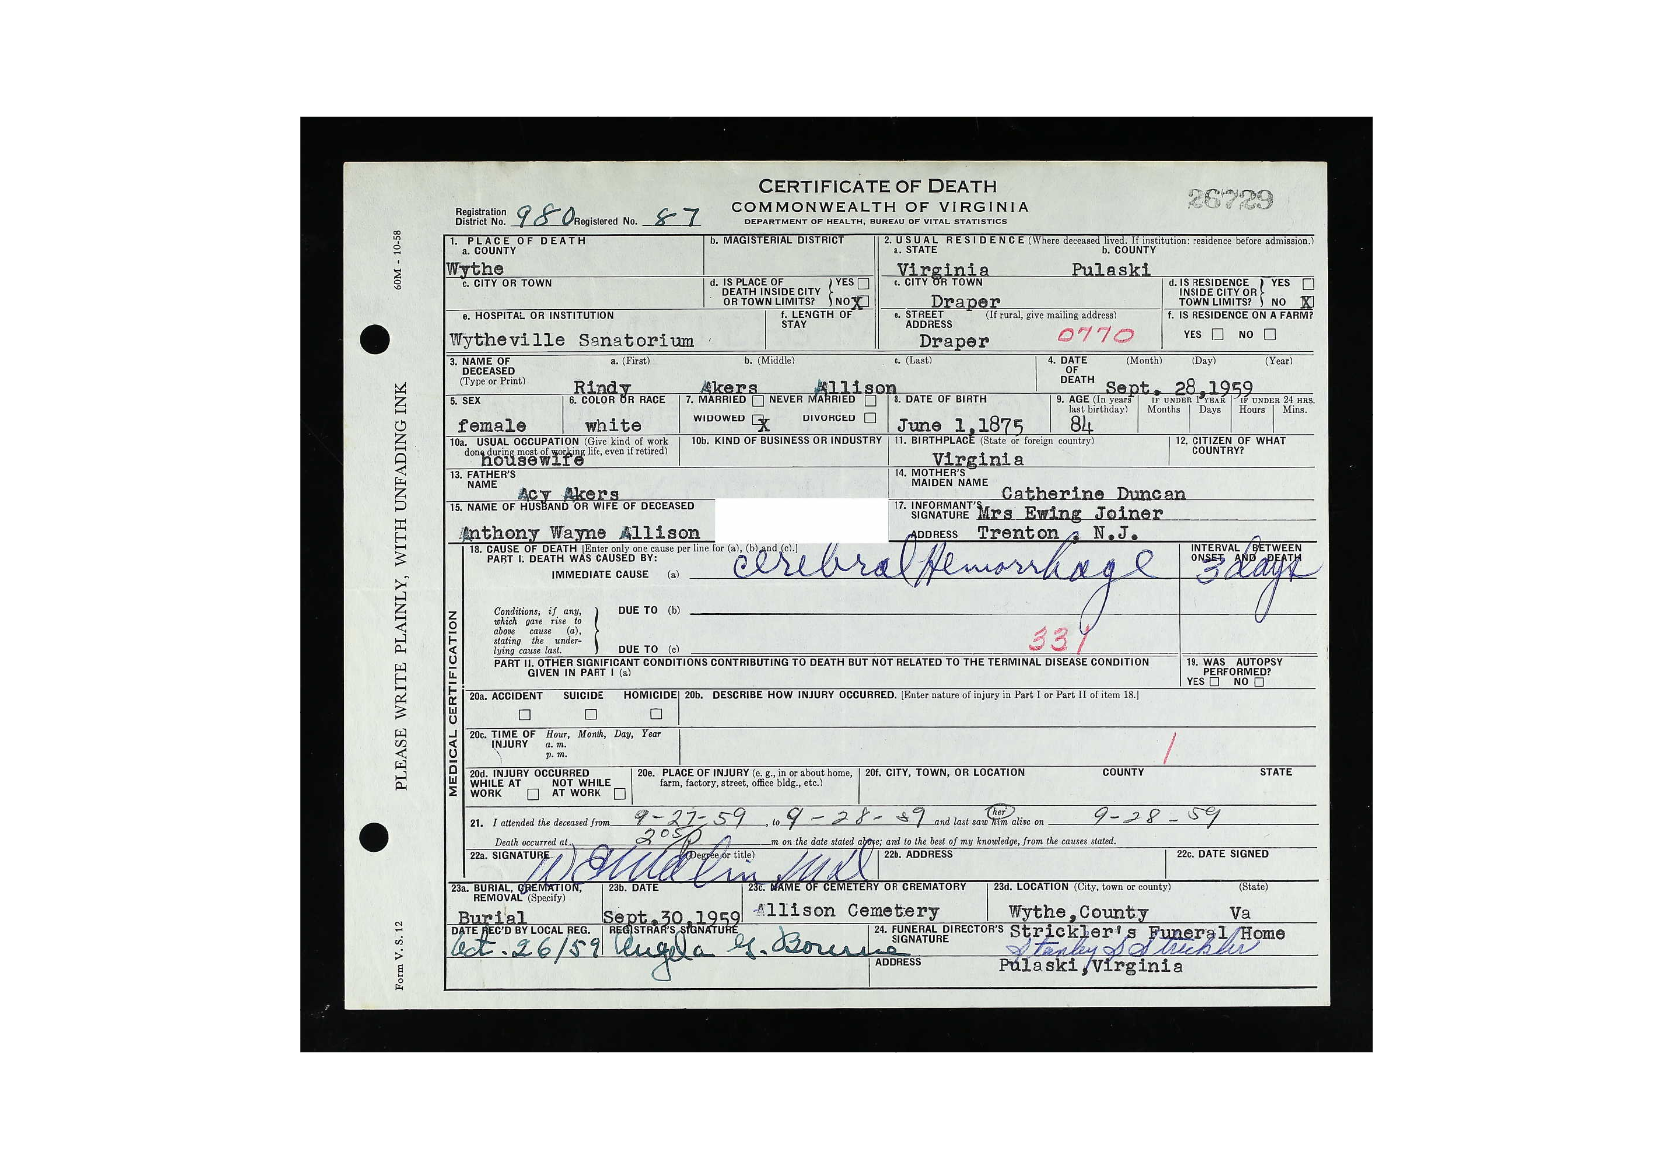 CERTIFICATE OF DEATH
COMMONWEALTH OF VIRGINIA
DEPARTMENT OF HEALTH, BUREAU OF VITAL STATISTICS
26729
Registration District No. 980 Registered No. 87
60M - 10-58
PLEASE WRITE PLAINLY, WITH UNFADING INK
Form V. S. 12
1. PLACE OF DEATH
a. COUNTY
Wythe
b. MAGISTERIAL DISTRICT
2. USUAL RESIDENCE (Where deceased lived. If institution: residence before admission.)
a. STATE b. COUNTY
Virginia Pulaski
c. CITY OR TOWN
d. IS PLACE OF DEATH INSIDE CITY OR TOWN LIMITS? YES NO X
c. CITY OR TOWN
Draper
d. IS RESIDENCE INSIDE CITY OR TOWN LIMITS? YES NO X
e. HOSPITAL OR INSTITUTION
Wytheville Sanatorium
f. LENGTH OF STAY
e. STREET ADDRESS (If rural, give mailing address)
Draper
0770
f. IS RESIDENCE ON A FARM?
YES NO
3. NAME OF DECEASED (Type or Print)
a. (First) b. (Middle) c. (Last)
Rindy Akers Allison
4. DATE OF DEATH (Month) (Day) (Year)
Sept. 28,1959
5. SEX
female
6. COLOR OR RACE
white
7. MARRIED NEVER MARRIED
WIDOWED X DIVORCED
8. DATE OF BIRTH
June 1,1875
9. AGE (In years last birthday)
84
IF UNDER 1 YEAR
Months Days
IF UNDER 24 HRS.
Hours Mins.
10a. USUAL OCCUPATION (Give kind of work done during most of working life, even if retired)
housewife
10b. KIND OF BUSINESS OR INDUSTRY
11. BIRTHPLACE (State or foreign country)
Virginia
12. CITIZEN OF WHAT COUNTRY?
13. FATHER'S NAME
Acy Akers
14. MOTHER'S MAIDEN NAME
Catherine Duncan
15. NAME OF HUSBAND OR WIFE OF DECEASED
Anthony Wayne Allison
17. INFORMANT'S SIGNATURE Mrs Ewing Joiner
ADDRESS Trenton , N.J.
MEDICAL CERTIFICATION
18. CAUSE OF DEATH [Enter only one cause per line for (a), (b) and (c).]
PART I. DEATH WAS CAUSED BY:
IMMEDIATE CAUSE (a) Cerebral Hemorrhage
INTERVAL BETWEEN ONSET AND DEATH
3 days
Conditions, if any, which gave rise to above cause (a), stating the underlying cause last.
DUE TO (b)
DUE TO (c)
331
PART II. OTHER SIGNIFICANT CONDITIONS CONTRIBUTING TO DEATH BUT NOT RELATED TO THE TERMINAL DISEASE CONDITION
GIVEN IN PART I (a)
19. WAS AUTOPSY PERFORMED?
YES NO
20a. ACCIDENT SUICIDE HOMICIDE
20b. DESCRIBE HOW INJURY OCCURRED. [Enter nature of injury in Part I or Part II of item 18.]
20c. TIME OF INJURY Hour, Month, Day, Year
a. m.
p. m.
20d. INJURY OCCURRED
WHILE AT WORK NOT WHILE AT WORK
20e. PLACE OF INJURY (e. g., in or about home, farm, factory, street, office bldg., etc.)
20f. CITY, TOWN, OR LOCATION COUNTY STATE
21. I attended the deceased from 9-27-59, to 9-28-59 and last saw him her alive on 9-28-59
Death occurred at 205 P m on the date stated above; and to the best of my knowledge, from the causes stated.
22a. SIGNATURE (Degree or title)
22b. ADDRESS
22c. DATE SIGNED
23a. BURIAL, CREMATION, REMOVAL (Specify)
Burial
23b. DATE
Sept.30,1959
23c. NAME OF CEMETERY OR CREMATORY
Allison Cemetery
23d. LOCATION (City, town or county) (State)
Wythe,County Va
DATE REC'D BY LOCAL REG.
Oct. 26/59
REGISTRAR'S SIGNATURE
Angela G. Bourne
24. FUNERAL DIRECTOR'S SIGNATURE
Strickler's Funeral Home
Stanley S Strickler
ADDRESS
Pulaski,Virginia